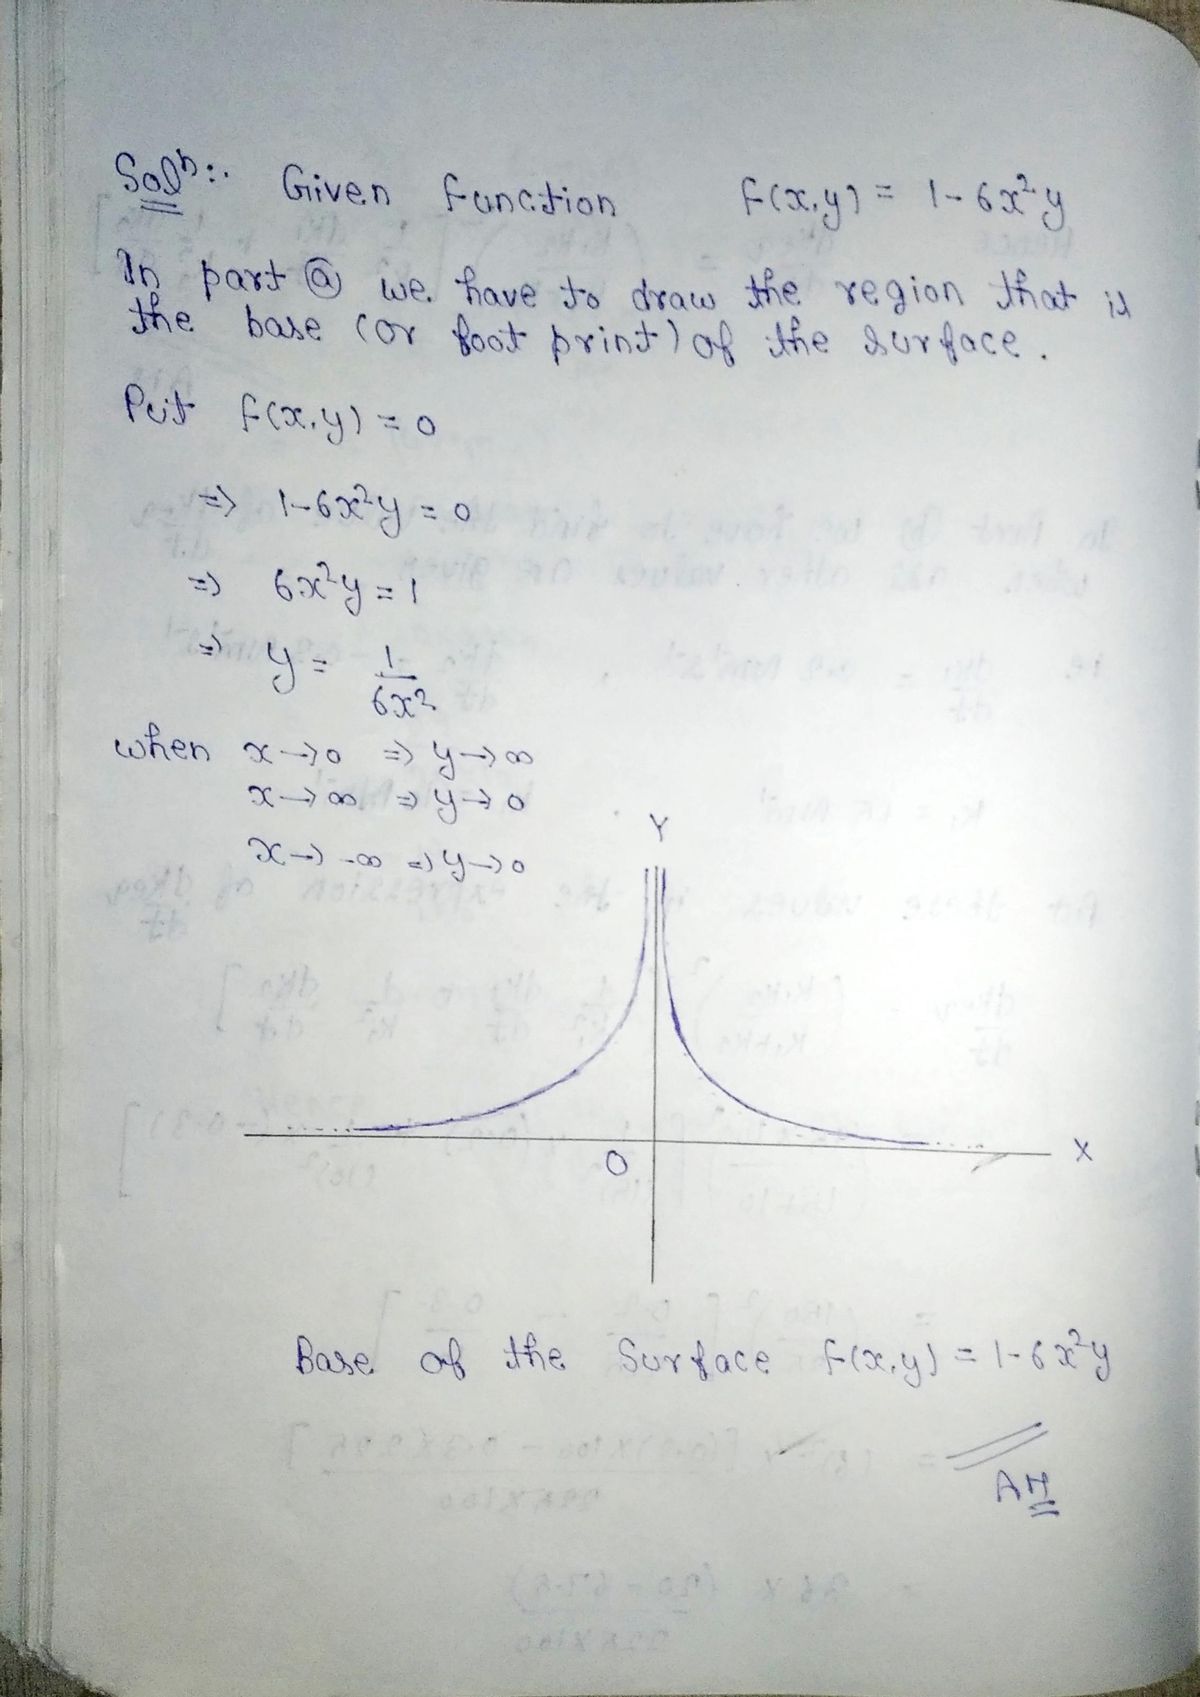 Solⁿ:. Given function f(x,y) = 1-6x²y
In part ⓐ we have to draw the region that is
the base (or foot print) of the surface.
Put f(x,y) = 0
=> 1-6x²y = 0
=> 6x²y = 1
=> y = 1/6x²
when x→0 => y→∞
x→∞ => y→0
x→-∞ => y→0
Y
O
X
Base of the Surface f(x,y) = 1-6x²y